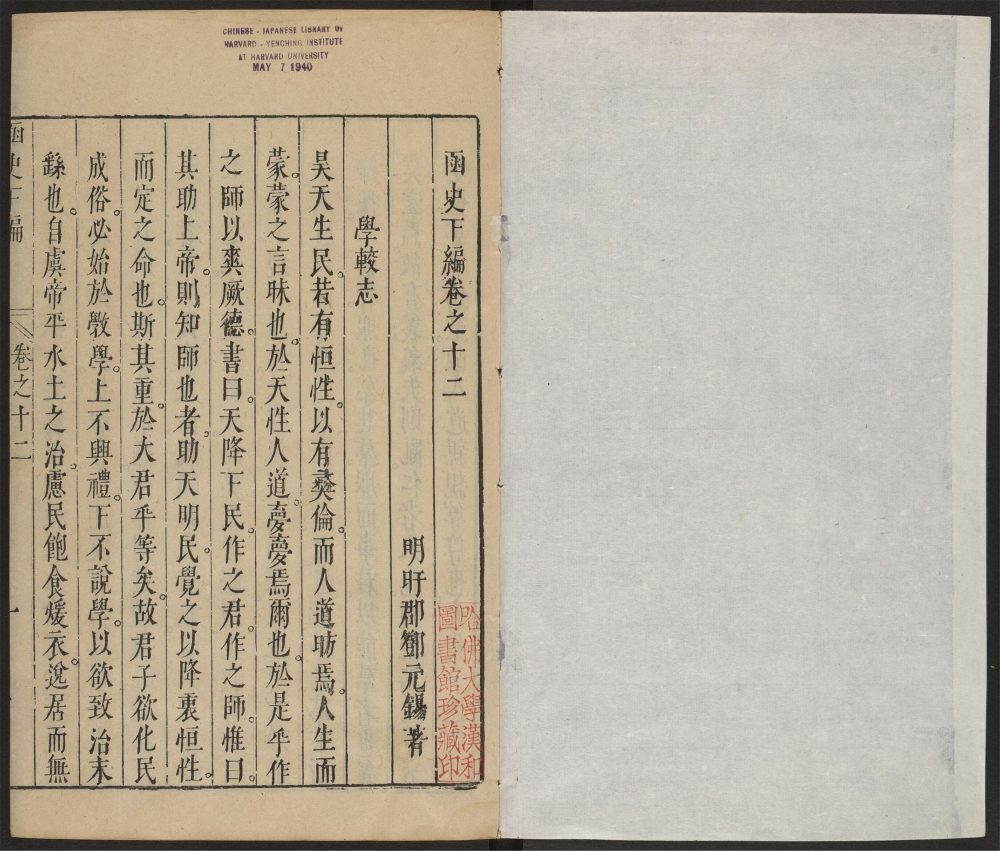 CHINESE - JAPANESE LIBRARY OF
HARVARD - YENCHING INSTITUTE
AT HARVARD UNIVERSITY
MAY 7 1940
函史下編卷之十二
明旴郡鄧元錫著
哈佛大學漢和
圖書館珍藏印
學較志
昊天生民。若有恒性。以有彛倫。而人道昉焉。人生而
蒙。蒙之言昧也。於天性人道夢夢焉爾也。於是乎作
之師以爽厥德。書曰。天降下民。作之君。作之師。惟曰。
其助上帝。則知師也者。助天明民。覺之以降衷恒性。
而定之命也。斯其重。於大君乎等矣。故君子欲化民
成俗。必始於敎學。上不興禮。下不說學。以欲致治末
繇也。自虞帝平水土之治。慮民飽食煖衣。逸居而無
函史下編
卷之十二
一